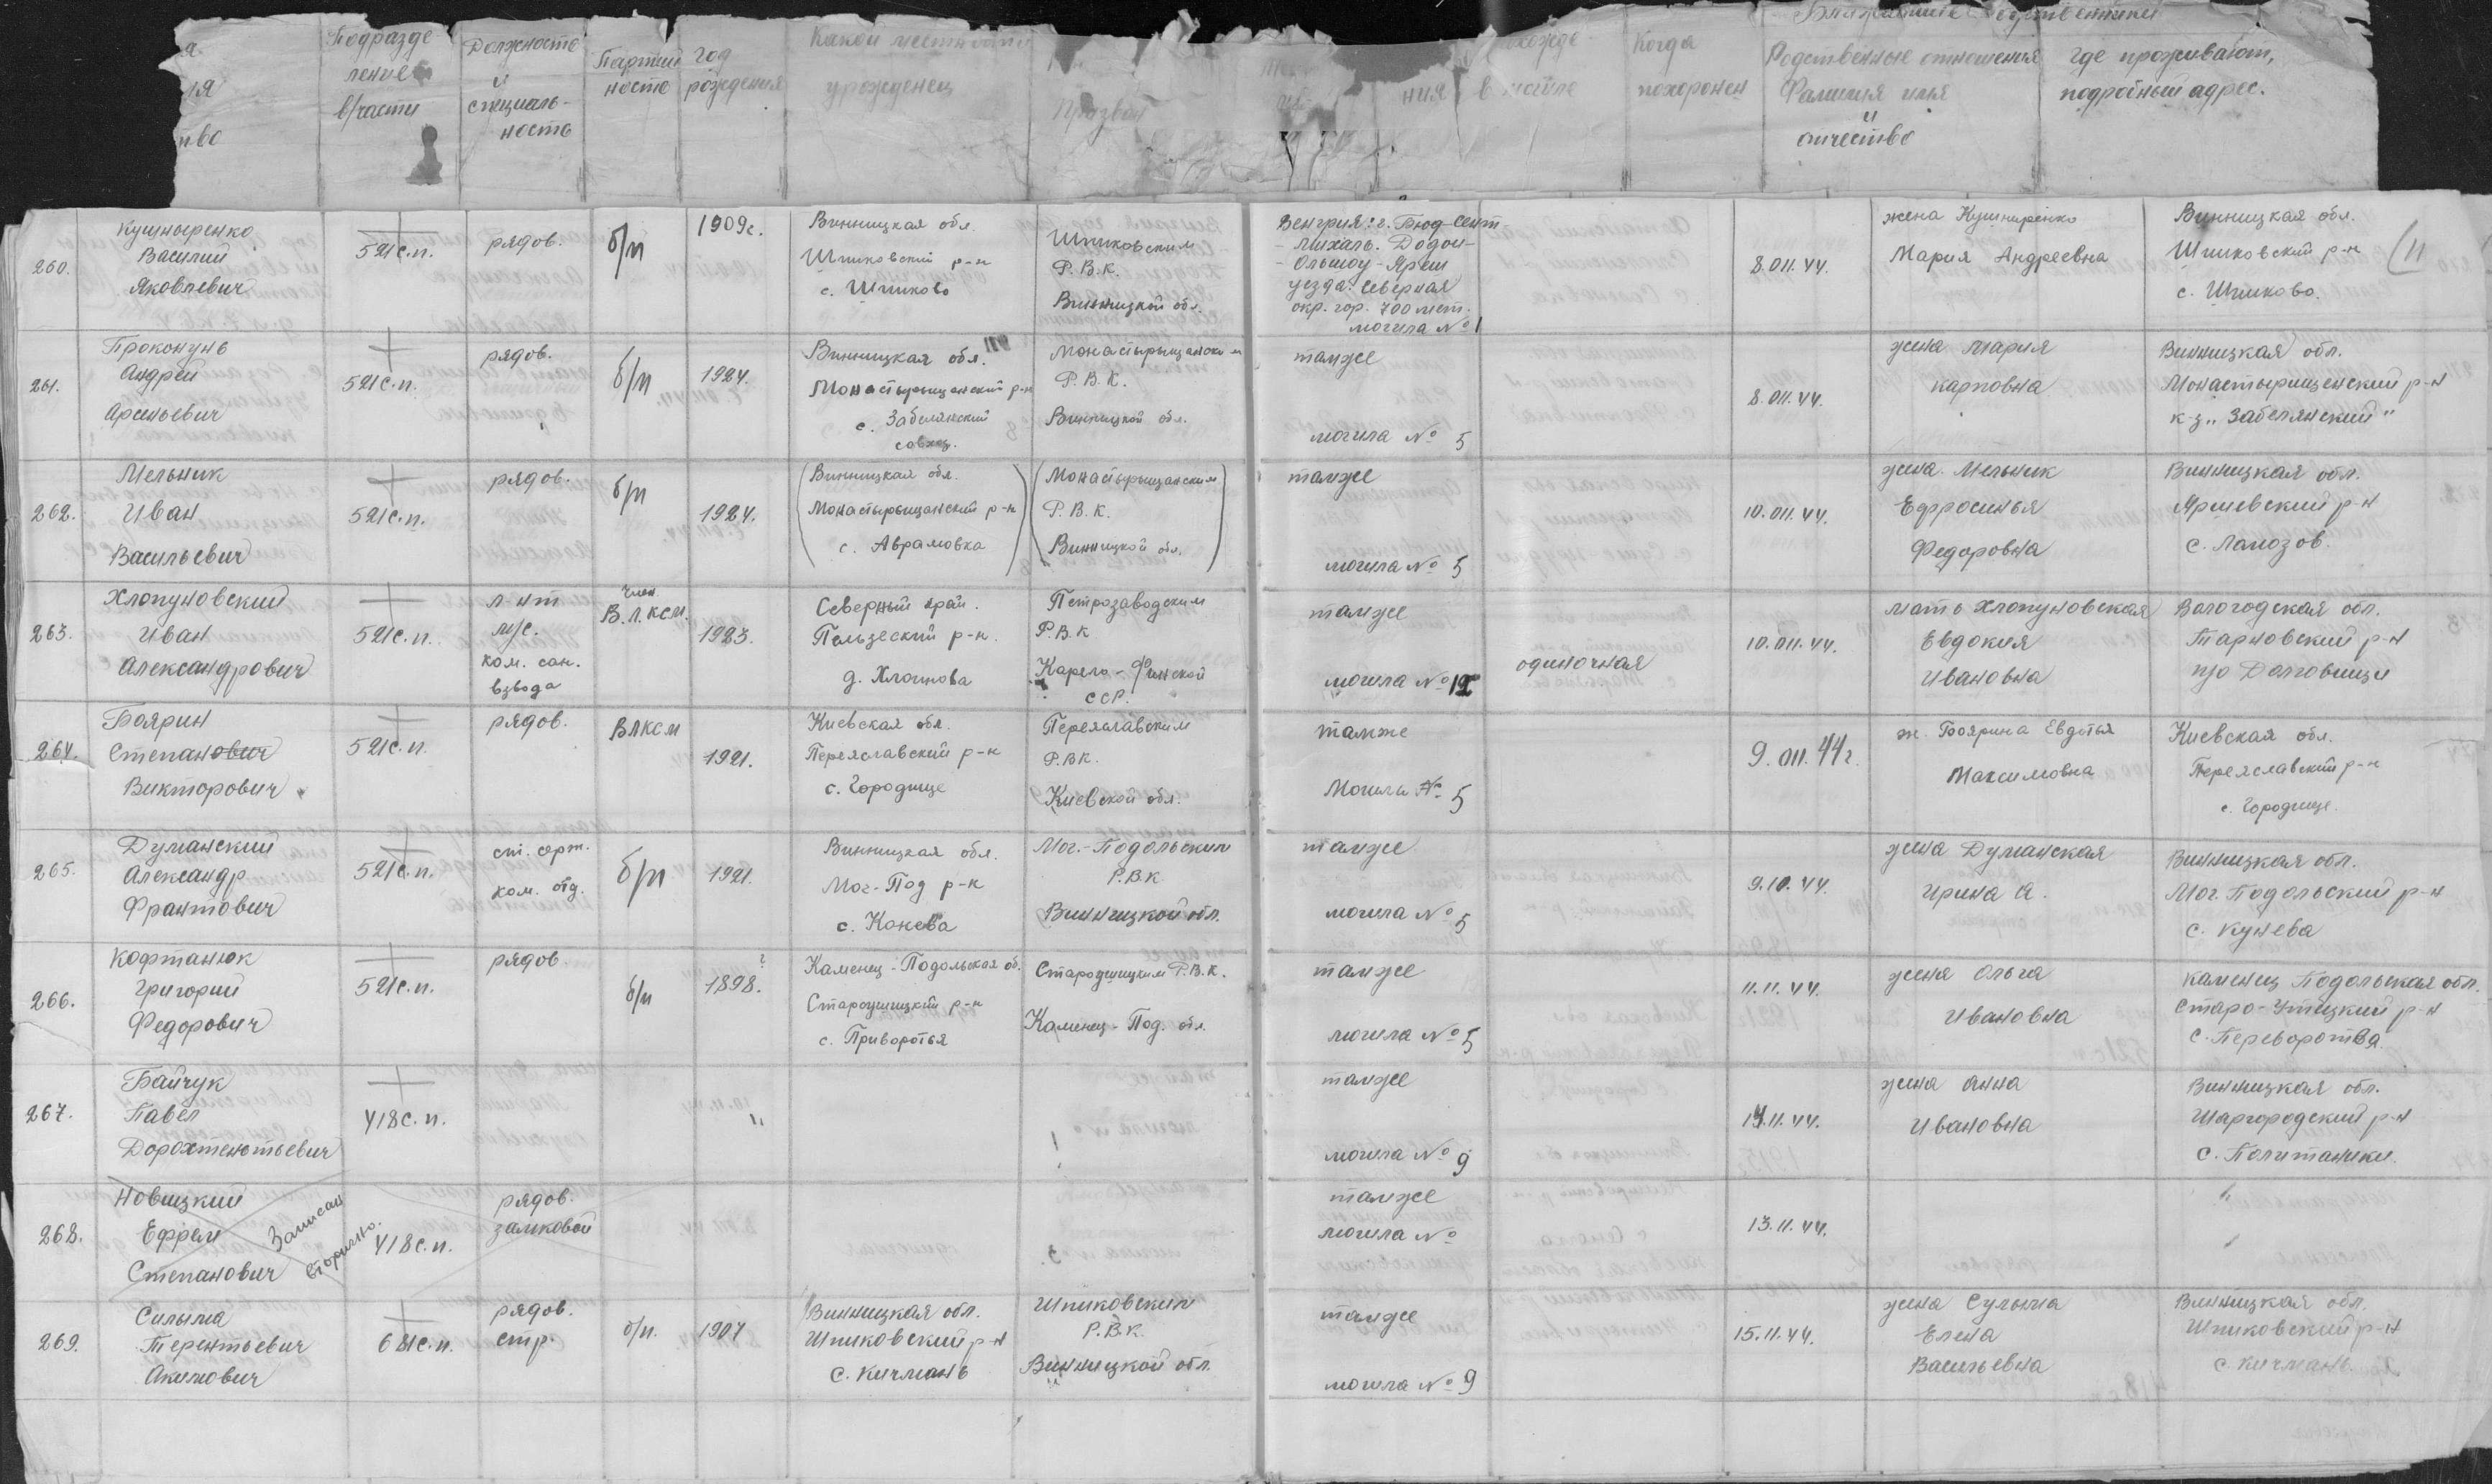 Подразде-
ление
в/части
Должность
и
специаль-
ность
Партий
ность
год
рождения
Какой местности
урожденец
Призван
ния
в могиле
Когда
похоронен
Ближайшие родственники
Родственные отношения
Фамилия имя
и
отчество
где проживают,
подробный адрес.
тво
260.
Кушныренко
Василий
Яковлевич
521с.п.
рядов.
б/п
1909г.
Винницкая обл.
Шпиковский р-н
с. Шпиково
Шпиковским
Р.В.К.
Винницкой обл.
Венгрия: г. Бюд-Сент
- Михаль. Додон-
- Ольшоу-Яреш
уезда. Северная
окр. гор. 700 мет.
могила № 1
8.011.44.
жена Кушниренко
Мария Андреевна
Винницкая обл.
Шпиковский р-н
с. Шпиково.
11
261.
Проконунь
Андрей
Арсеньевич
521с.п.
рядов.
б/п
1924.
Винницкая обл.
Монастырищанский р-н
с. Забелянский
совхоз.
Монастырищанским
Р.В.К.
Винницкой обл.
также
могила № 5
8.011.44.
жена Мария
Карповна
Винницкая обл.
Монастырищенский р-н
к-з „Забелянский"
262.
Мельник
Иван
Васильевич
521с.п.
рядов.
б/п
1924.
Винницкая обл.
Монастырыщанский р-н
с. Аврамовка
Монастырыщанским
Р.В.К.
Винницкой обл.
также
могила № 5
10.011.44.
жена. Мельник
Ефросинья
Федоровна
Винницкая обл.
Яришевский р-н
с. Ламозов.
263.
Хлопуновский
Иван
Александрович
521с.п.
л-нт
м/с.
ком. сан.
взвода
член
В.Л.КСМ.
1923.
Северный край.
Пельзеский р-н.
д. Хлопнова
Петрозаводским
Р.В.К
Карело-Финской
ССР.
также
могила № 12
одиночная
10.011.44.
мать Хлопуновская
Евдокия
Ивановна
Вологодская обл.
Тарновский р-н
п/о Долговицы
264.
Боярин
Степанович
Викторович
521с.п.
рядов.
ВЛКСМ
1921.
Киевская обл.
Переяславский р-н
с. Городище
Переяславским
Р.ВК.
Киевской обл.
также
Могила № 5
9.011.44г.
ж. Боярина Евдотья
Максимовна
Киевская обл.
Переяславский р-н
с. Городище.
265.
Думанский
Александр
Франтович
521с.п.
ст. серж.
ком. отд.
б/п
1921.
Винницкая обл.
Мог-Под р-н
с. Конева
Мог.-Подольским
Р.В.К
Винницкой обл.
также
могила № 5
9.10.44.
жена Думанская
Ирина А.
Винницкая обл.
Мог. Подольский р-н
с. Кунева
266.
Кофтанюк
Григорий
Федорович
521с.п.
рядов.
б/п
1898.
?
Каменец-Подольская об.
Староушицкий р-н
с. Приворотья
Староушицким Р.В.К.
Каменец-Под. обл.
также
могила № 5
11.11.44.
жена Ольга
Ивановна
Каменец Подольская обл.
Старо-Утицкий р-н
с. Переворотва
267.
Байчук
Павел
Дорохтентьевич
418с.п.
также
могила № 9
14.11.44.
жена Анна
Ивановна
Винницкая обл.
Шаргородский р-н
с. Политанки
268.
Новицкий
Ефрем
Степанович
Записан
вторично.
418с.п.
рядов.
замковой
также
могила №
13.11.44.
269.
Сильма
Терентьевич
Акимович
681с.п.
рядов.
стр.
б/п.
1907
Винницкая обл.
Шпиковский р-н
с. Кичмань
Шпиковским
Р.В.К.
Винницкой обл.
также
могила № 9
15.11.44.
жена Сульма
Елена
Васильевна
Винницкая обл.
Шпиковский р-н
с. Кичмань.